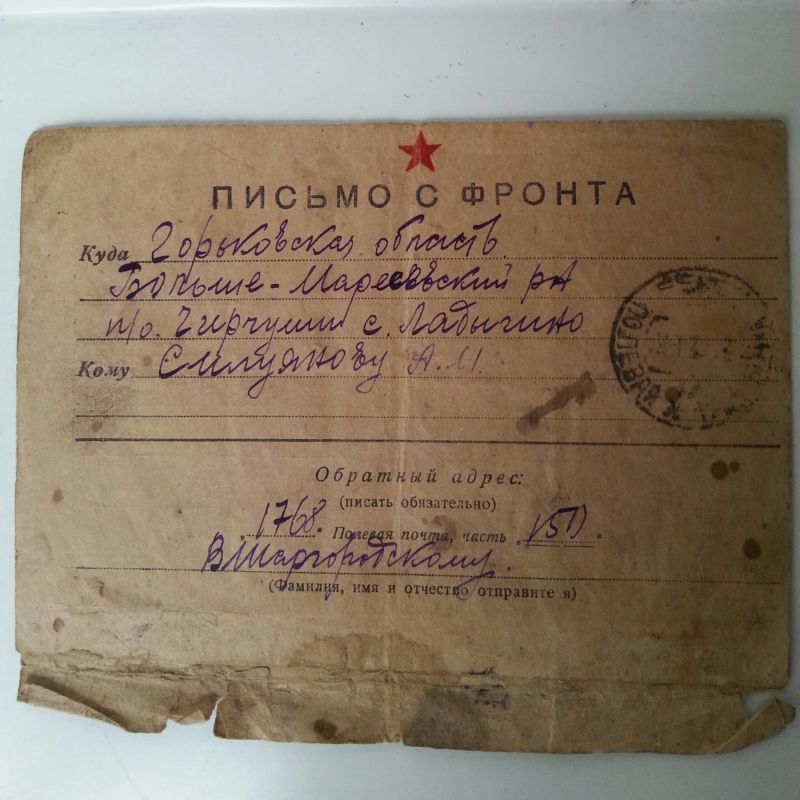 ПИСЬМО С ФРОНТА
Куда Горьковская область
Больше-Мареевский р-н
п/о. Чирчуши с. Ладыгино
Кому Силуянову А.М.
Обратный адрес:
(писать обязательно)
„1768“ Полевая почта, часть „
В Шаргородскому.
(Фамилия, имя и отчество отправите я)